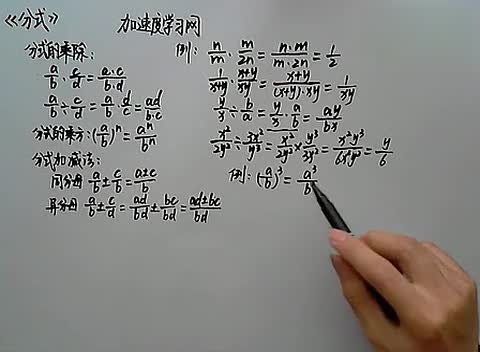 《分式》 加速度学习网
分式的乘除:
a/b · c/d = a·c/b·d
a/b ÷ c/d = a/b · d/c = ad/b·c
分式的乘方: (a/b)ⁿ = aⁿ/bⁿ
分式加减法:
同分母 a/b ± c/b = a±c/b
异分母 a/b ± c/d = ad/bd ± bc/bd = ad±bc/bd
例: n/m · m/2n = n·m/m·2n = 1/2
1/x+y · x+y/xy = x+y/(x+y)·xy = 1/xy
y/x ÷ b/a = y/x · a/b = ay/bx
x²/2y² ÷ 3x²/y³ = x²/2y² × y³/3x² = x²y³/6x²y² = y/6
例: (a/b)³ = a³/b